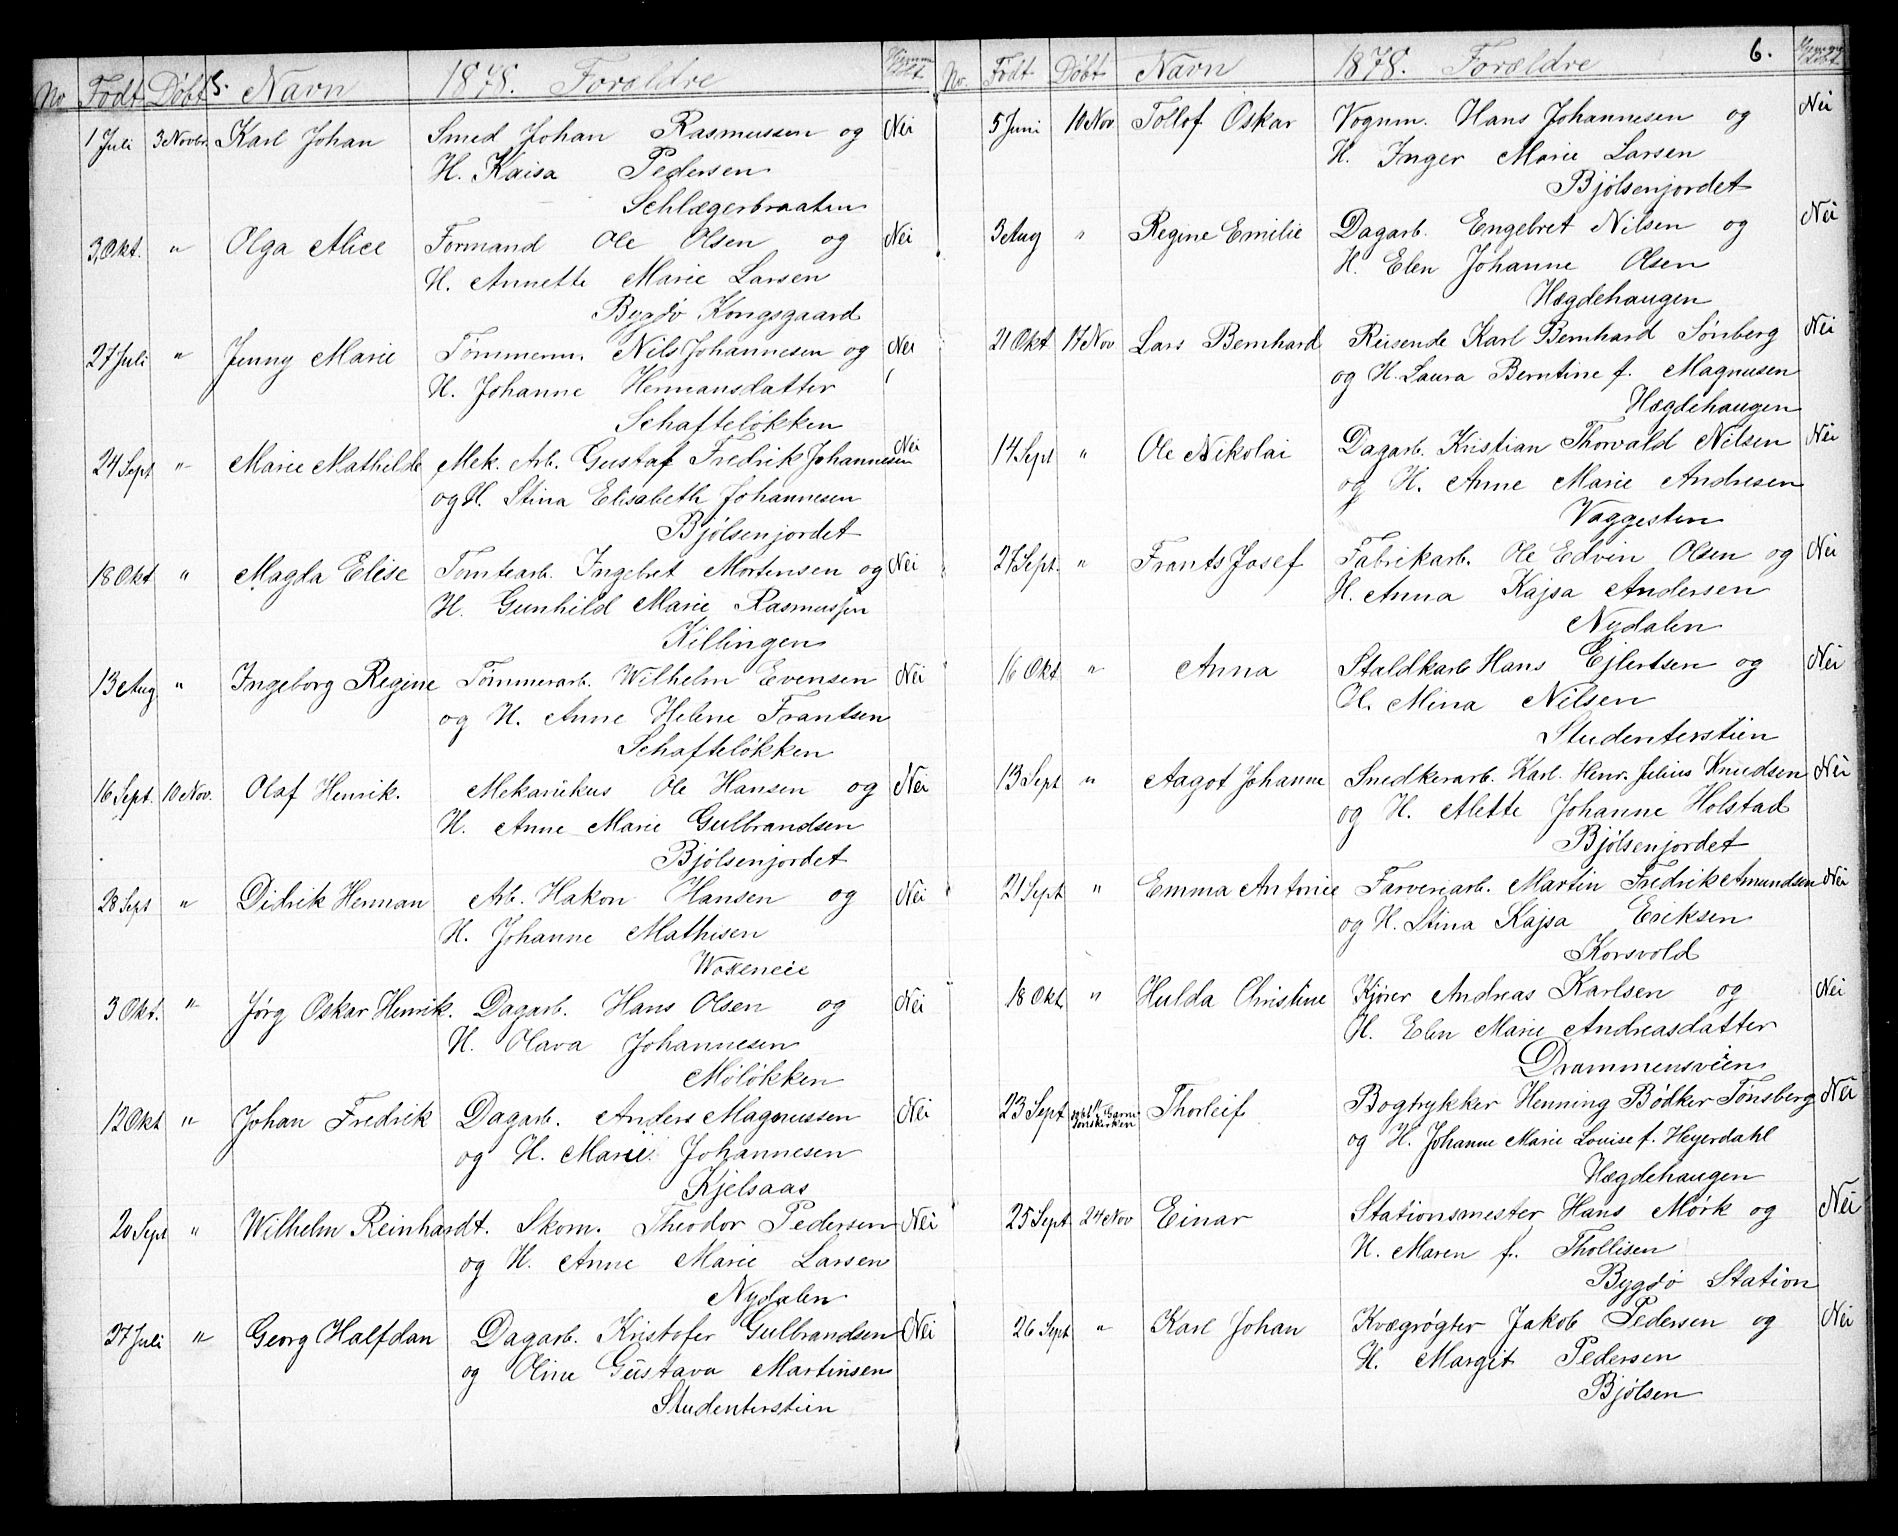 No Født Døbt 5. Navn 1878. Forældre Hjemmedøbt.
1 Juli 3 Novbr. Karl Johan Smed Johan Rasmussen og Nei
H. Kaisa Pedersen
Schlægerbraaten
3, Okt. " Olga Alice Formand Ole Olsen og Nei
H. Annette Marie Larsen
Bygdø Kongsgaard
27 Juli " Jenny Marie Tømmerm. Nils Johannesen og Nei
H. Johanne Hermansdatter
Schafteløkken
24 Sept " Marie Mathilde Mek. Arb. Gustaf Fredrik Johannesen Nei
og H. Stina Elisabeth Johannesen
Bjølsenjordet
18 Okt " Magda Elise Tomtearb. Ingebret Mortensen og Nei
H. Gunhild Marie Rasmussen
Killingen
13 Aug " Ingeborg Regine Tømmerarb. Wilhelm Evensen Nei
og H. Anne Helene Frantsen
Schafteløkken
16 Sept. 10 Nov. Olaf Henrik. Mekanikus Ole Hansen og Nei
H. Anne Marie Gulbrandsen
Bjølsenjordet
28 Sept " Didrik Herman Arb. Hakon Hansen og Nei
H. Johanne Mathisen
Woxeneie
3 Okt. " Jørg Oskar Henrik. Dagarb. Hans Olsen og Nei
H. Olava Johannesen
Møløkken
12 Okt " Johan Fredrik Dagarb. Anders Magnussen Nei
og H. Marie Johannesen
Kjelsaas
20 Sept " Wilhelm Reinhardt. Skom. Theodor Pedersen Nei
og H. Anne Marie Larsen
Nydalen
27 Juli " Georg Halfdan Dagarb. Kristofer Gulbrandsen Nei
og Oline Gustava Martinsen
Studenterstien
No. Født Døbt Navn 1878. Forældre 6. Hjemmedøbt
5 Juni 10 Nov Tollof Oskar Vognm. Hans Johannesen og Nei
H. Inger Marie Larsen
Bjølsenjordet
3 Aug " Regine Emilie Dagarb. Engebret Nilsen og Nei
H. Elen Johanne Olsen
Hægdehaugen
21 Okt 17 Nov Lars Bernhard Reisende Karl Bernhard Sønberg Nei
og H. Laura Berntine f. Magnusen
Hægdehaugen
14 Sept " Ole Nikolai Dagarb. Kristian Thorvald Nilsen Nei
og H. Anne Marie Andresen
Vaggesten
27 Sept. " Frants Josef Fabrikarb. Ole Edvin Olsen og Nei
H. Anna Kajsa Andersen
Nydalen
16 Okt " Anna Staldkarl Hans Ejlertsen og Nei
H. Mina Nilsen
Studenterstien
13 Sept " Aagot Johanne Snedkerarb. Karl. Henr. Julius Knudsen Nei
og H. Alette Johanne Holstad
Bjølsenjordet
21 Sept " Emma Antonie Farveriarb. Martin Fredrik Amundsen Nei
og H. Stina Kajsa Eriksen
Korsvold
18 Okt " Hulda Christine Kjører Andreas Karlsen og Nei
H. Elen Marie Andreasdatter
Drammensveien
23 Sept Thorleif Bogtrykker Henning Bødker Tønsberg Nei
og H. Johanne Marie Louise f. Heyerdahl
Hægdehaugen
25 Sept 24 Nov Einar Stationsmester Hans Mørk og Nei
H. Maren f. Thollisen
Bygdø Station
26 Sept " Karl Johan Kvægrøgter Jakob Pedersen og Nei
H. Margit Pedersen
Bjølsen